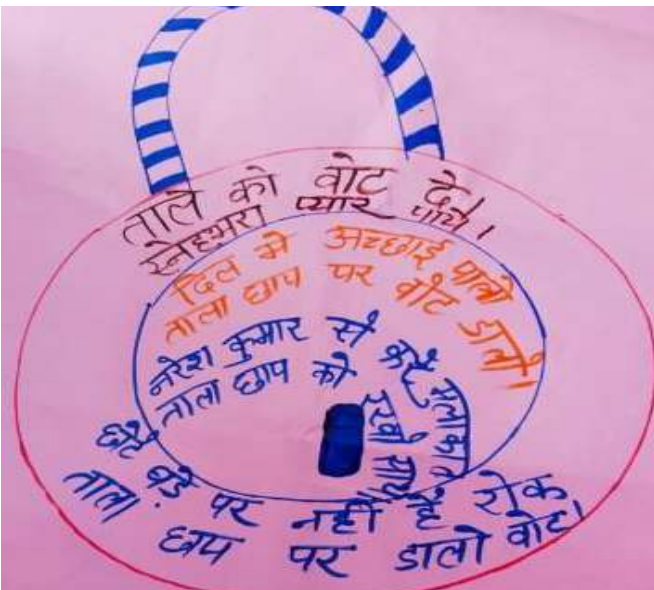 ताले को वोट दे।
स्नेहभरा प्यार पाये।
दिल मे अच्छाई पालो
ताला छाप पर वोट डालो।
नरेश कुमार से करें मुलाकात
ताला छाप को रखो साथ
छोटे बडे पर नहीं है रोक
ताला छाप पर डालो वोट।